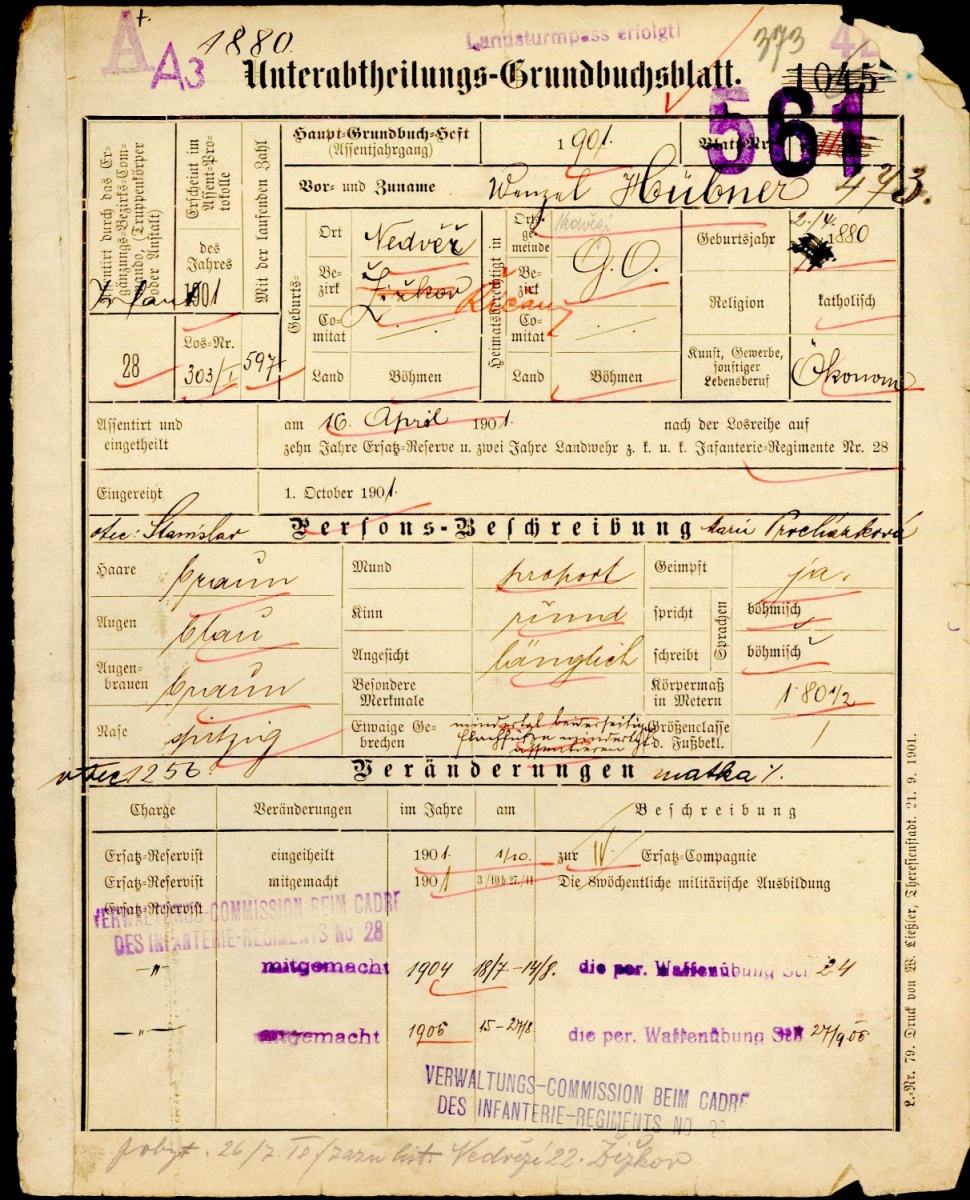 A+
A3
1880.
Landsturmpass erfolgt!
373
1045
Unterabtheilungs-Grundbuchsblatt.
561
Haupt-Grundbuch-Heft
(Assentjahrgang)
1901.
Blatt-Nr.
Vor- und Zuname
Wenzel Hübner
473.
Assentirt durch das Ergänzungs-Bezirks-Commando, (Truppenkörper oder Anstalt)
28
Erscheint im Assent-Protokolle
des Jahres
1901
Los-Nr.
303/I
Mit der laufenden Zahl
597
Geburts-
Ort
Nedvěž
Bezirk
Žižkov
Říčany
Comitat
Land
Böhmen
Heimatsberechtigt in
Ortsgemeinde
Nedvězí
G.O.
Bezirk
Comitat
Land
Böhmen
Geburtsjahr
2./4. 1880
Religion
katholisch
Kunst, Gewerbe, sonstiger Lebensberuf
Ökonom
Assentirt und eingetheilt
am 16. April 1901. nach der Losreihe auf
zehn Jahre Ersatz-Reserve u. zwei Jahre Landwehr z. k. u. k. Infanterie-Regimente Nr. 28
Eingereiht
1. October 1901.
otec: Stanislav
Persons-Beschreibung
Marie Procházková
Haare
braun
Mund
proport
Geimpft
ja.
Augen
blau
Kinn
rund
spricht
Sprachen
böhmisch
Augenbrauen
braun
Angesicht
länglich
schreibt
böhmisch
Besondere Merkmale
Körpermaß in Metern
1·80 1/2
Nase
spitzig
Etwaige Gebrechen
Größenclasse d. Fußbekl.
1
otec 1256
Veränderungen
matka
Charge
Veränderungen
im Jahre
am
Beschreibung
Ersatz-Reservist eingetheilt 1901. 1/10. zur IV Ersatz-Compagnie
Ersatz-Reservist mitgemacht 1901 3/10 b 27./11 Die 8wöchentliche militärische Ausbildung
Ersatz-Reservist
VERWALTUNGS-COMMISSION BEIM CADRE
DES INFANTERIE-REGIMENTS No 28
-"- mitgemacht 1904 18/7-14/8. die per. Waffenübung 24
-"- mitgemacht 1906 15-27/8. die per. Waffenübung 27/9 06
VERWALTUNGS-COMMISSION BEIM CADRE
DES INFANTERIE-REGIMENTS No. 28
pobyt. 26/7. Nedvězí 22. Žižkov
L.-Nr. 79. Druck von W. Ließler, Theresienstadt. 21. 9. 1901.